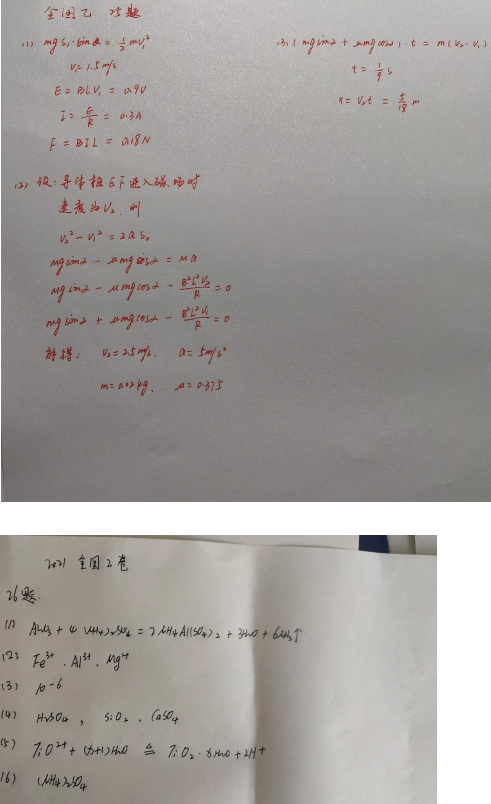 全国乙 25题
(1) mgs₁·sinα = 1/2 mv₁²
v₁=1.5m/s
E = BLV₁ = 0.9V
I = E/R = 0.3A
F = BIL = 0.18N
(2) 设:导体框EF进入磁场时
速度为V₂.则
v₂² - v₁² = 2as₀
Mgsinα - μmgcosα = Ma
Mgsinα - μmgcosα - B²L²V₂/R = 0
mgsinα + μmgcosα - B²L²V₁/R = 0
解得: V₂=2.5m/s. a = 5m/s²
m=0.02kg. μ=0.375
(3) (mgsinα + μmgcosα)·t = m(V₂-V₁)
t = 1/9 s
x = V₂t = 5/18 m
2021 全国2卷
26题.
(1) Al₂O₃ + 4(NH₄)₂SO₄ = 2NH₄Al(SO₄)₂ + 3H₂O + 6NH₃↑
(2) Fe³⁺. Al³⁺. Mg²⁺
(3) 10⁻⁶
(4) H₂SO₄, SiO₂. CaSO₄
(5) TiO²⁺ + (x+1)H₂O ≜ TiO₂·xH₂O + 2H⁺
(6) (NH₄)₂SO₄